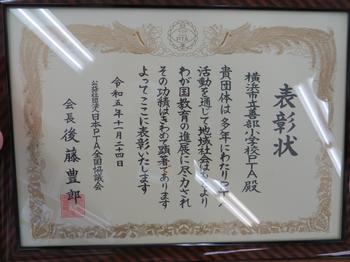 表彰状
横浜市立善部小学校PTA殿
貴団体は多年にわたりPTA
活動を通じて地域社会はもとより
わが国教育の進展に尽力され
その功績はきわめて顕著であります
よってここに表彰いたします
令和五年十一月二十四日
公益社団法人日本PTA全国協議会
会長 後藤豊郎